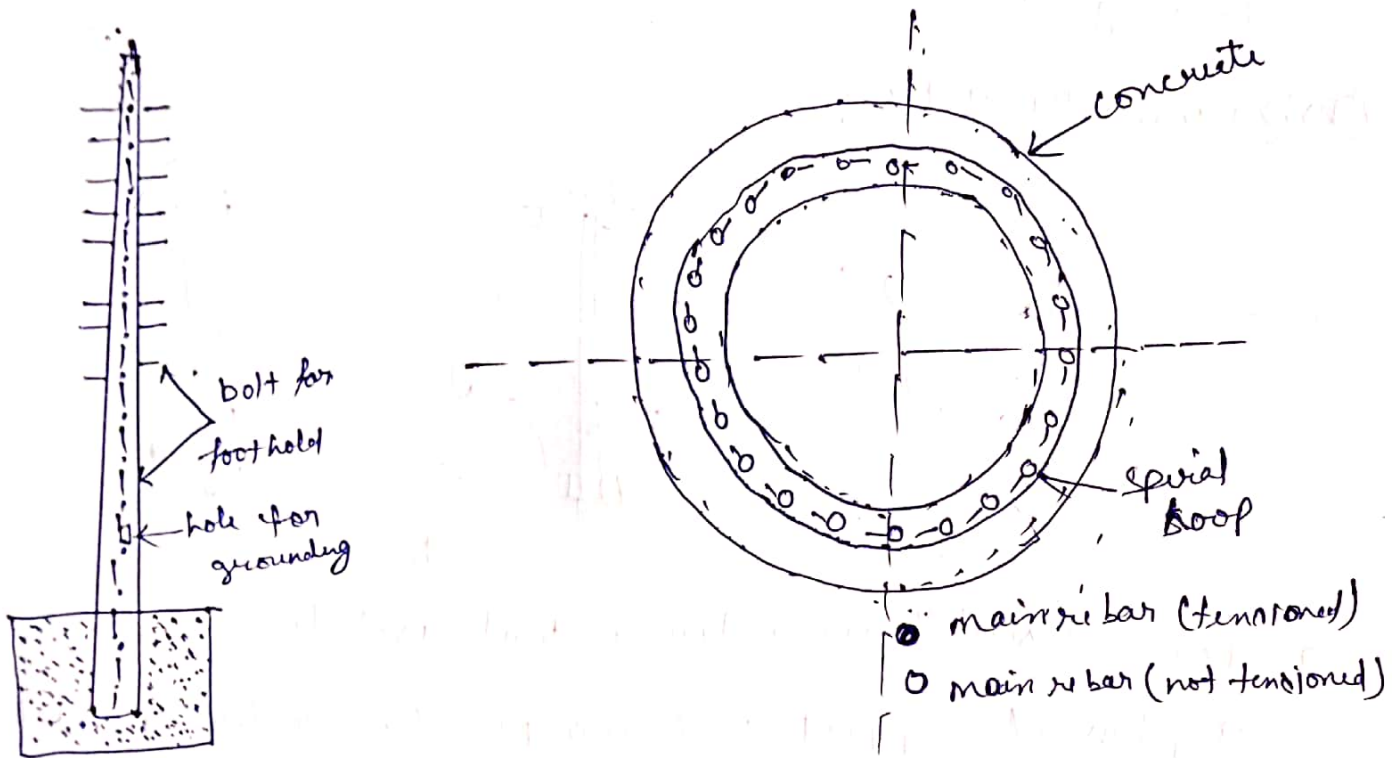 bolt for
foothold
hole for
grounding
concrete
spiral
hoop
main re bar (tensioned)
main re bar (not tensioned)